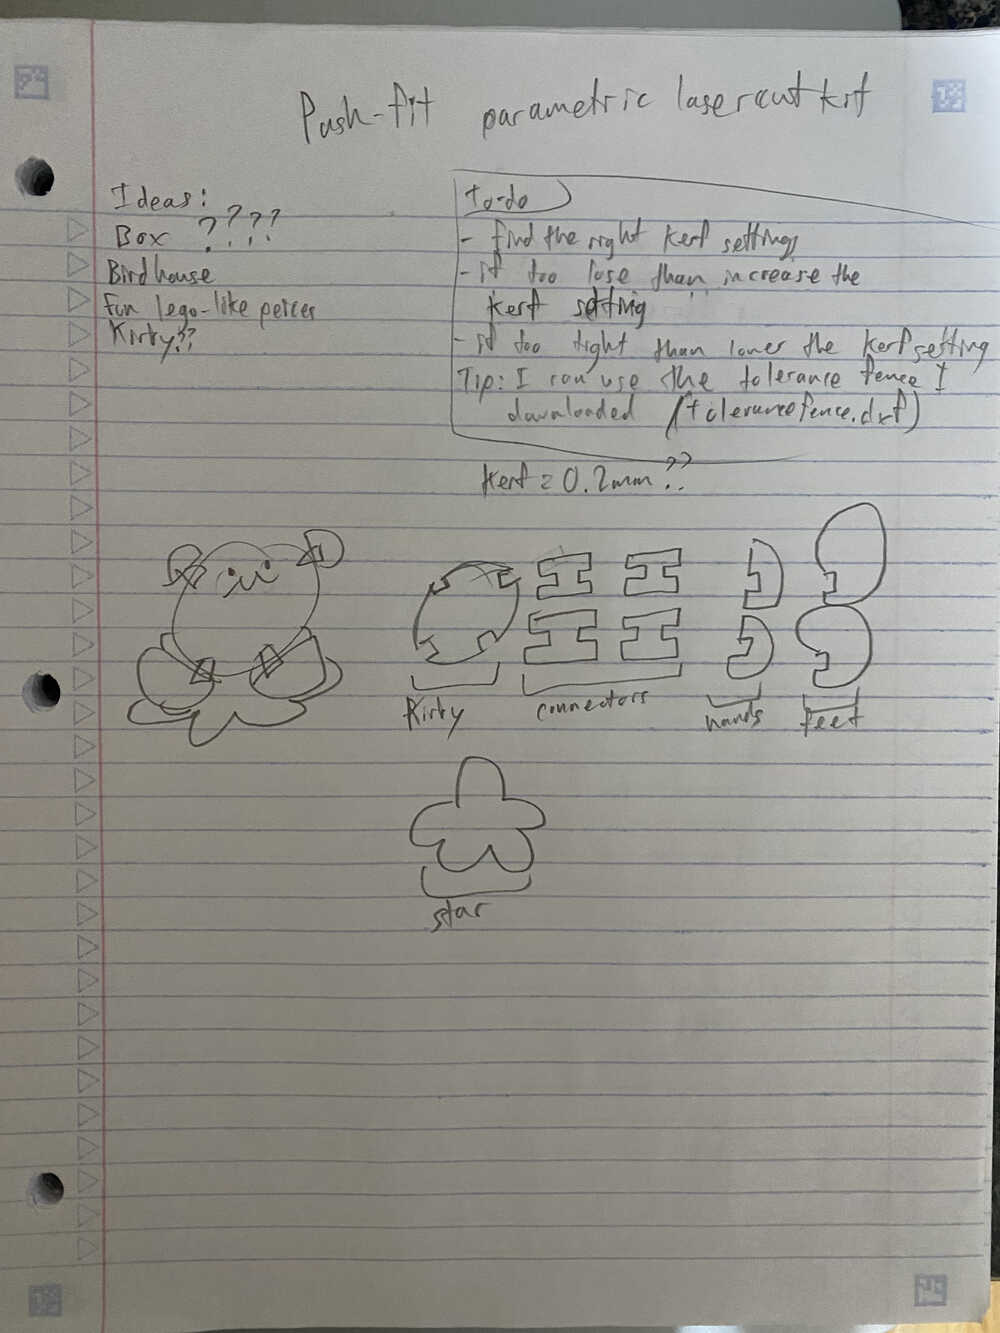 Push-fit parametric lasercut kit
Ideas:
Box ????
Birdhouse
Fun lego-like peices
Kirby??
To-do
- find the right kerf settings
- if too lose than increase the
kerf setting
- if too tight than lower the kerf setting
Tip: I can use the tolerance fence I
downloaded (tolerancefence.dxf)
kerf = 0.2mm ??
Kirby
connectors
hands
feet
star